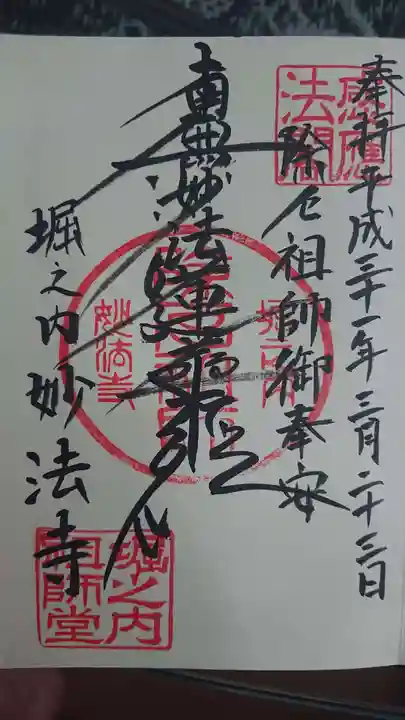 奉拝平成三十一年三月二十三日
除厄祖師御奉安
南無妙法蓮華経
堀之内妙法寺
感應
法閣
堀之内
妙法寺
堀之内
祖師堂